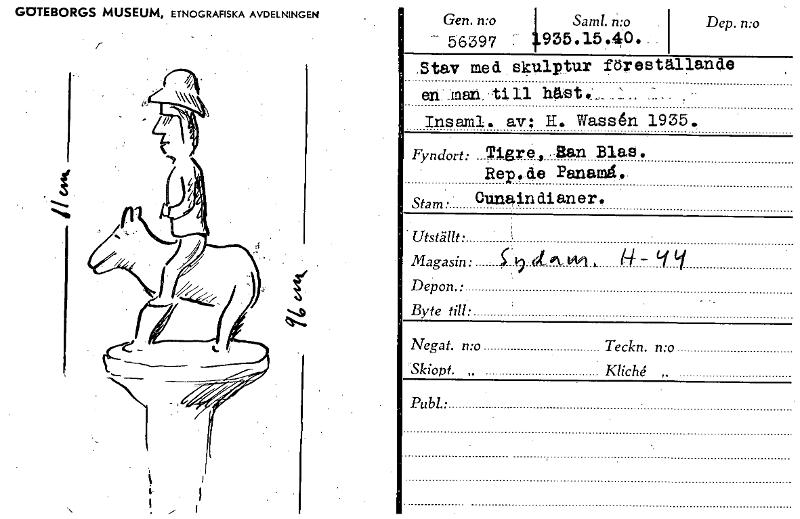 GÖTEBORGS MUSEUM, ETNOGRAFISKA AVDELNINGEN
11 cm
96 cm
Gen. n:o Saml. n:o Dep. n:o
56397 1935.15.40.
Stav med skulptur föreställande
en man till häst.
Insaml. av: H. Wassén 1935.
Fyndort: Tigre, San Blas.
Rep.de Panamá.
Stam: Cunaindianer.
Utställt:
Magasin: Sydam. H-44
Depon.:
Byte till:
Negat. n:o Teckn. n:o
Skiopt. „ Kliché „
Publ.: